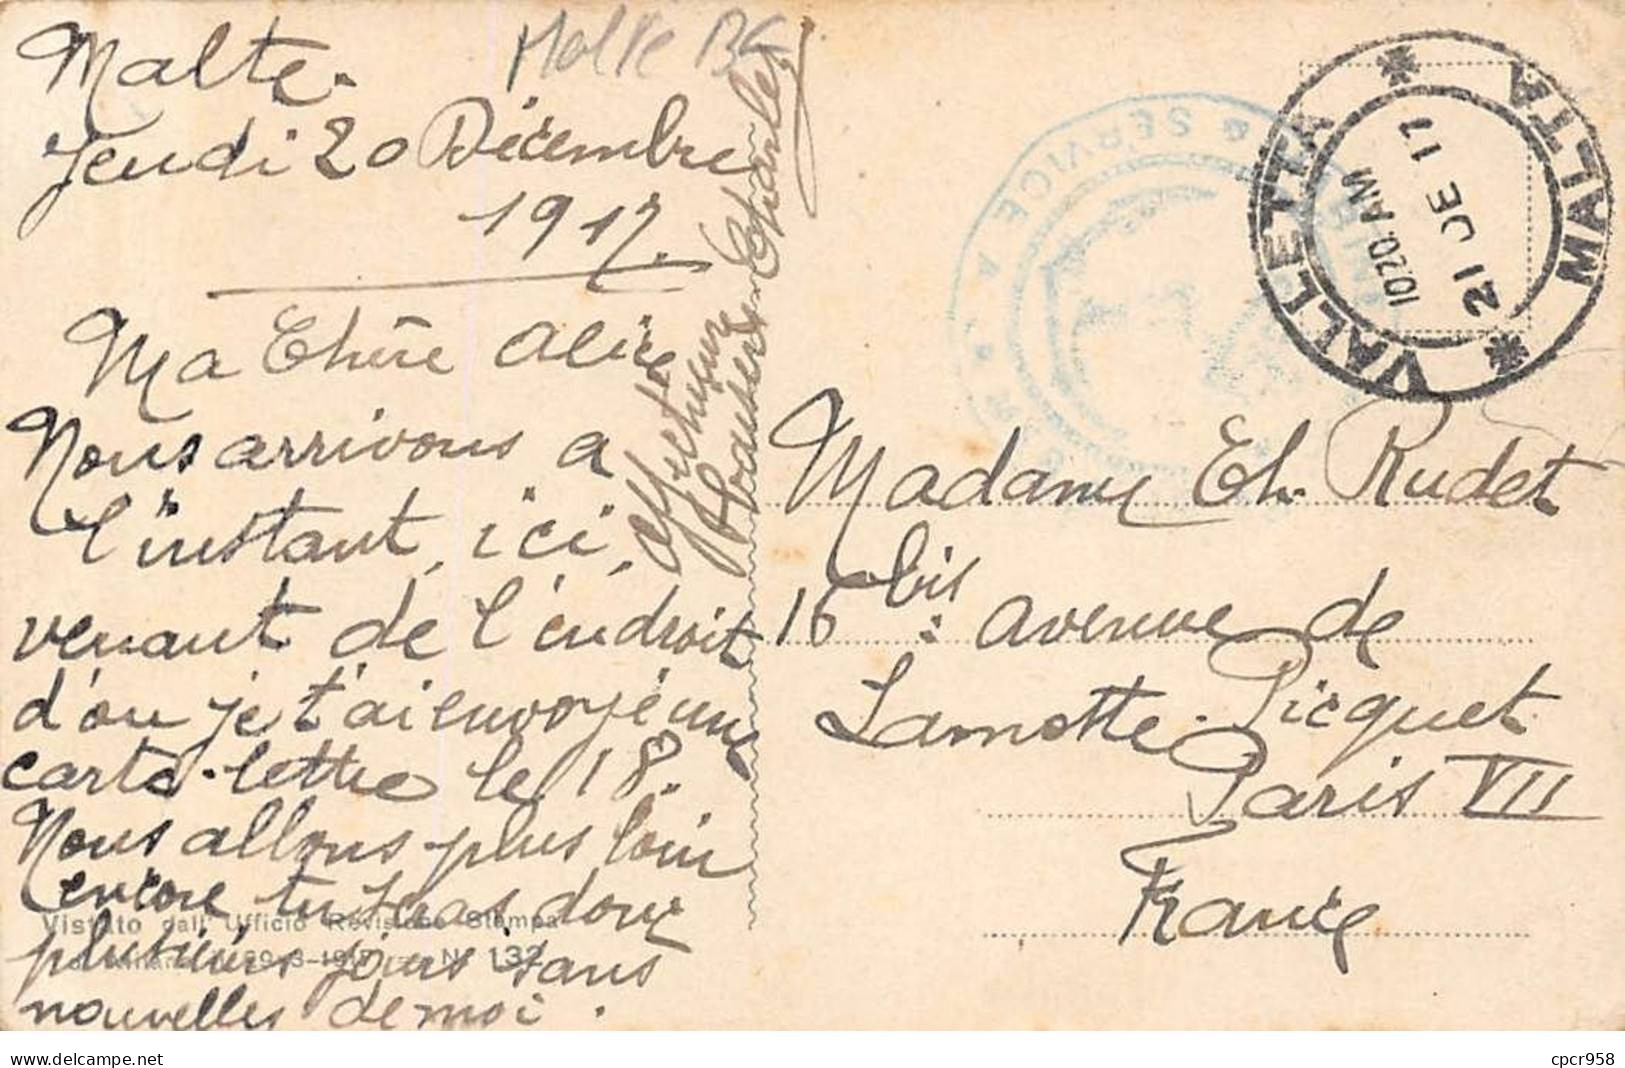 Malte BG
Malte.
Jeudi 20 Décembre
1917.
Ma Chère Alice
Nous arrivons a
l'instant, ici,
venant de l'endroit
d'ou je t'ai envoyé une
carte-lettre le 18.
Nous allons plus loin
encore donc
plusieurs jours sans
nouvelles de moi.
Affectueux
baisers
Charles
Vistato dall' Ufficio Revisione Stampa
N. 132
VALLETTA * MALTA *
1020. AM
21 DE 17
SERVICE A
Madame Ch. Rudet
16 bis: avenue de
Lamotte-Picquet
Paris VII
France
cpcr958